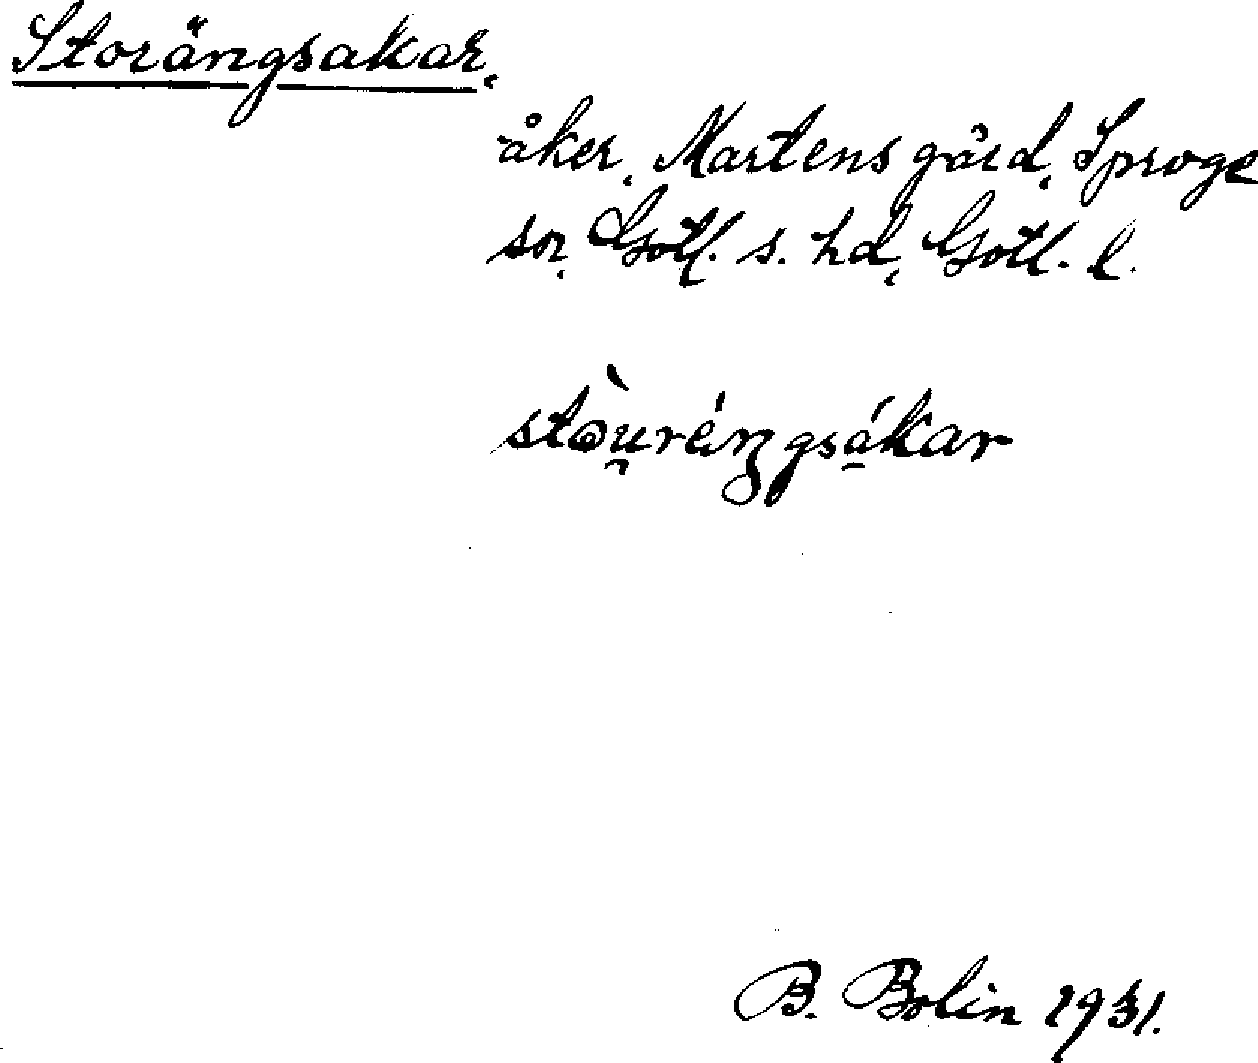 Storängsakar,
åker, Martens gård, Sproge
sn, Gotl. s. hd, Gotl. l.
B. Bolin 1931.